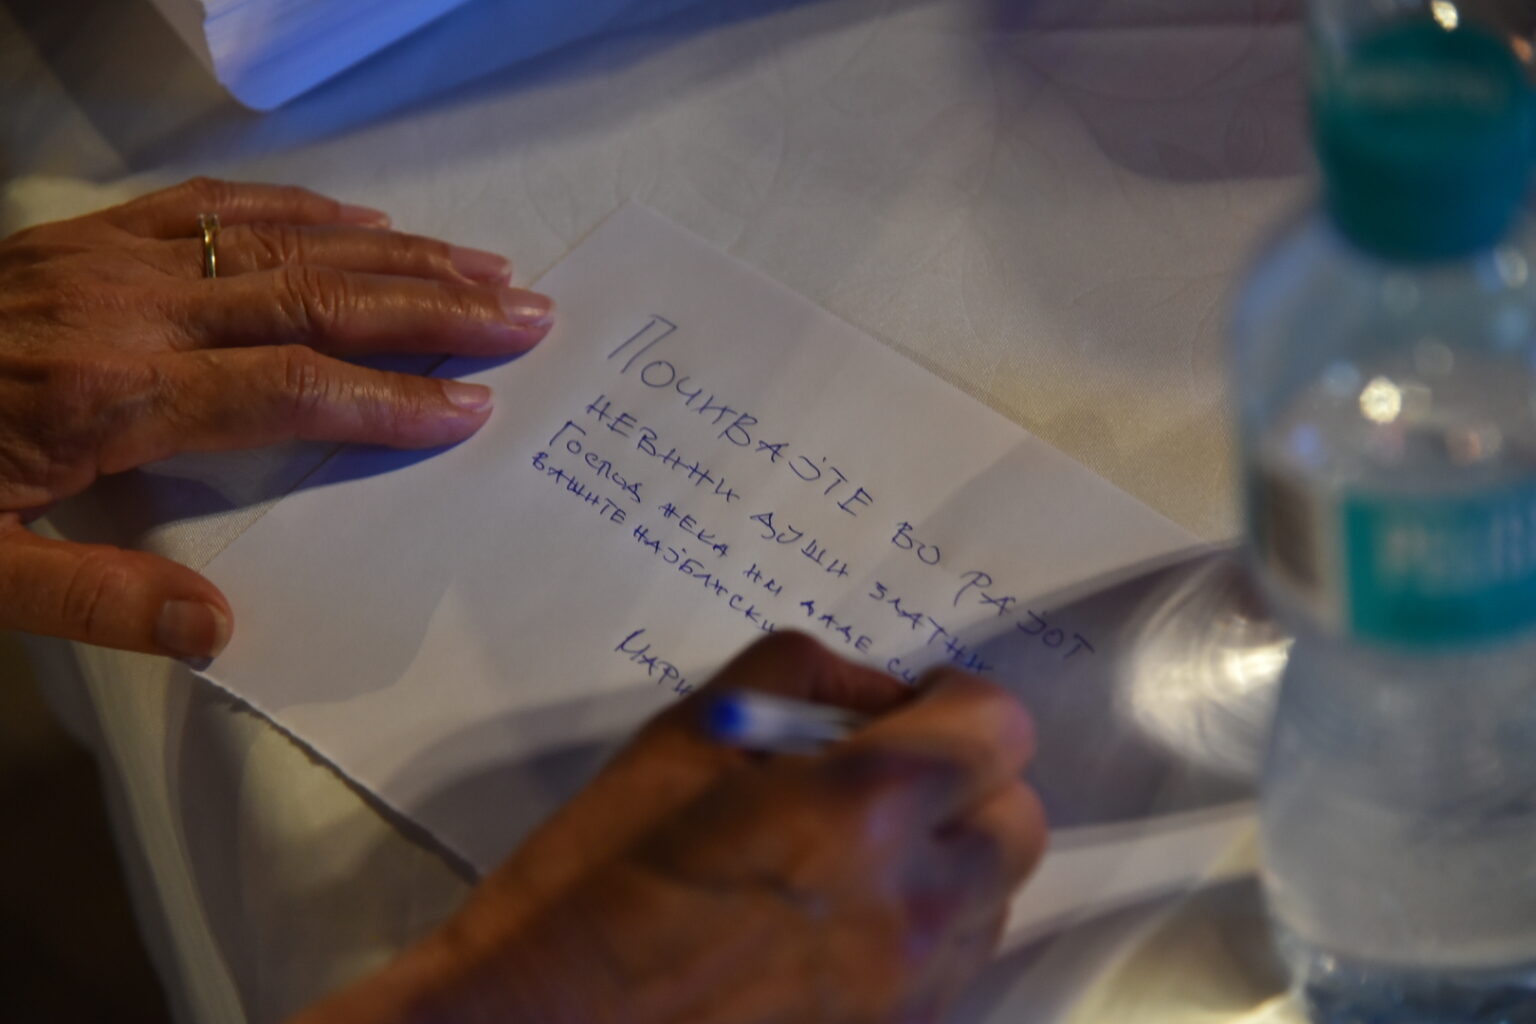 Почивајте во рајот
невини души златни
Господ нека им даде си
вашите најблиски
Мари